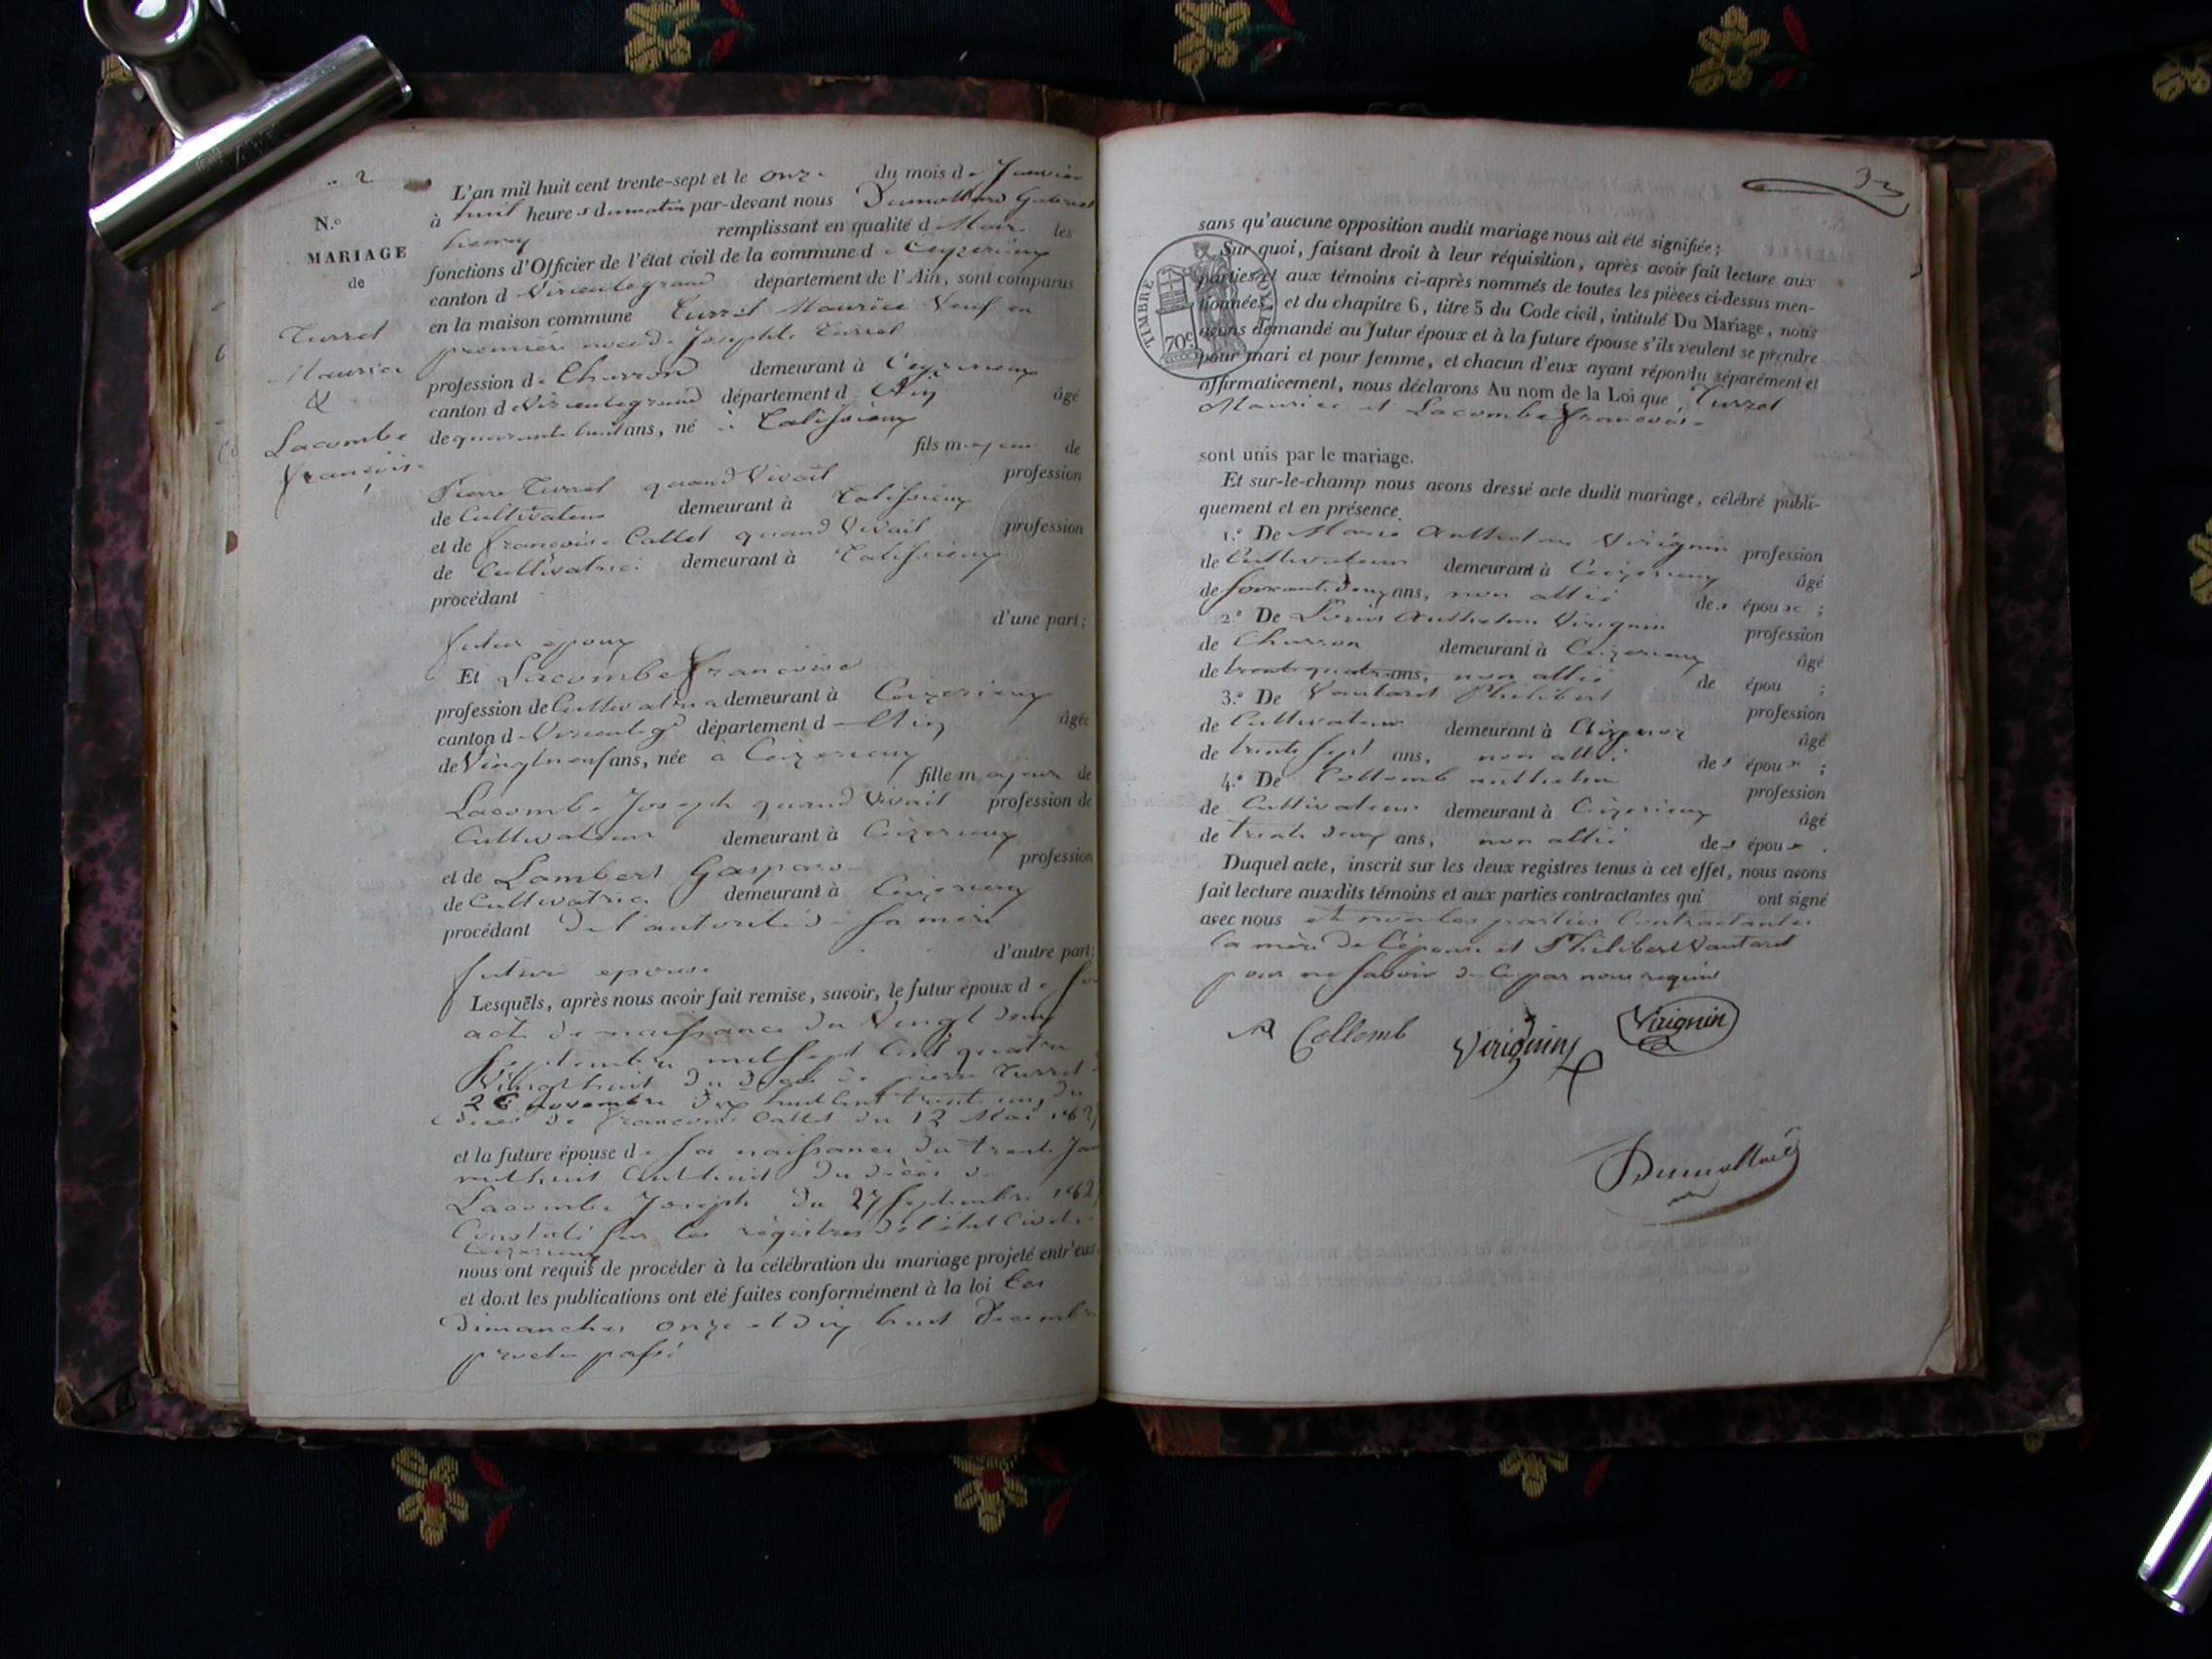 2
N.º
MARIAGE
de
Turrel
Maurice
&
Lacombe
françoise
L'an mil huit cent trente-sept et le onze du mois de Janvier
à huit heures du matin par-devant nous Dumollard Gabriel
henry remplissant en qualité de Maire les
fonctions d'Officier de l'état civil de la commune de Ceyzerieux
canton de Virieulegrand département de l'Ain, sont comparus
en la maison commune Turrel Maurice Veuf en
première noce de Josephte Turrel
profession de Charron demeurant à Ceyzerieux
canton de Virieulegrand département d Ain âgé
de quarante huit ans, né à Talissieux
fils majeur de
Pierre Turrel quand Vivait profession
de Cultivateur demeurant à Talissieux
et de françoise Callet quand Vivait profession
de Cultivatrice demeurant à Talissieux
procédant
d'une part;
futur epoux
Et Lacombe françoise
profession de Cultivatrice demeurant à Ceizerieux
canton de Virieuleg^d département d Ain âgée
de Vingtneuf ans, née à Ceizerieux
fille majeure de
Lacombe Joseph quand Vivait profession de
Cultivateur demeurant à Ceizerieux
et de Lambert Gasparde profession
de Cultivatrice demeurant à Ceizerieux
procédant de l'autorité de sa mère
d'autre part;
future epouse
Lesquels, après nous avoir fait remise, savoir, le futur époux de son
acte de naissance du Vingt deux
Septembre mil sept Cent quatre
Vingt huit du décès de pierre Turrel
26 novembre dix huit cent trente un, du
décès de françoise Callet du 12 Mai
et la future épouse de sa naissance du trente
mil huit Cent huit du décès de
Lacombe Joseph du 27 Septembre
Constaté sur les régistres de l'état Civil
Ceizerieux
nous ont requis de procéder à la célébration du mariage projeté entr'eux
et dont les publications ont été faites conformément à la loi Les
dimanches onze et dix huit decembre
proche passé
3
sans qu'aucune opposition audit mariage nous ait été signifiée;
Sur quoi, faisant droit à leur réquisition, après avoir fait lecture aux
parties et aux témoins ci-après nommés de toutes les pièces ci-dessus men-
tionnées, et du chapitre 6, titre 5 du Code civil, intitulé Du Mariage, nous
avons demandé au futur époux et à la future épouse s'ils veulent se prendre
pour mari et pour femme, et chacun d'eux ayant répondu séparément et
affirmativement, nous déclarons Au nom de la Loi que Turrel
Maurice et Lacombe françoise
TIMBRE ROYAL
70c
sont unis par le mariage.
Et sur-le-champ nous avons dressé acte dudit mariage, célébré publi-
quement et en présence
1.º De Marie Anthelme Virignin profession
de Cultivateur demeurant à Ceizerieux âgé
de soixante douze ans, non allié des époux ;
2.º De Louis Anthelme Virignin profession
de Charron demeurant à Ceizerieux âgé
de trente quatre ans, non allié de épou ;
3.º De Vautaret Philibert profession
de Cultivateur demeurant à âgé
de trente sept ans, non allié des époux ;
4.º De Collomb anthelme profession
de Cultivateur demeurant à Ceizerieux âgé
de trente deux ans, non allié des époux .
Duquel acte, inscrit sur les deux registres tenus à cet effet, nous avons
fait lecture auxdits témoins et aux parties contractantes qui ont signé
avec nous et non les parties Contractantes
la mère de l'épouse et Philibert Vautaret
pour ne savoir de ce par nous requis
A Collomb Virignin Virignin
Dumollard